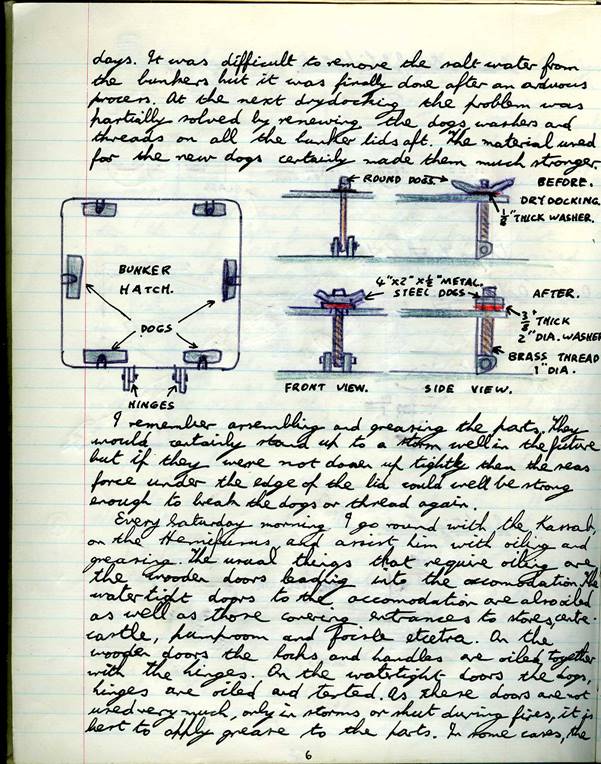 days. It was difficult to remove the salt water from
the bunkers but it was finally done after an arduous
process. At the next drydocking the problem was
partially solved by renewing the dogs, washers and
threads on all the bunker lids aft. The material used
for the new dogs certainly made them much stronger.
ROUND DOGS.
BEFORE.
DRYDOCKING.
1/8" THICK WASHER.
BUNKER
HATCH.
DOGS
HINGES
4"x2"x½" METAL.
STEEL DOGS
AFTER.
3/8" THICK
2" DIA. WASHER
BRASS THREAD
1" DIA.
FRONT VIEW.
SIDE VIEW.
I remember assembling and greasing the parts. They
would certainly stand up to a storm well in the future
but if they were not down up tightly then the seas
force under the edge of the lid could well be strong
enough to break the dogs or thread again.
Every Saturday morning I go round with the Kassab,
on the Hemifusus, and assist him with oiling and
greasing. The usual things that require oiling are
the wooden doors leading into the accomodation. The
watertight doors to the accomodation are also oiled
as well as those covering entrances to stores, centre-
castle, pumproom and focsle etcetra. On the
wooden doors the locks and handles are oiled, together
with the hinges. On the watertight doors the dogs,
hinges are oiled and tested. As these doors are not
used very much, only in storms, or shut during fires, it is
best to apply grease to the parts. In some cases, the
6